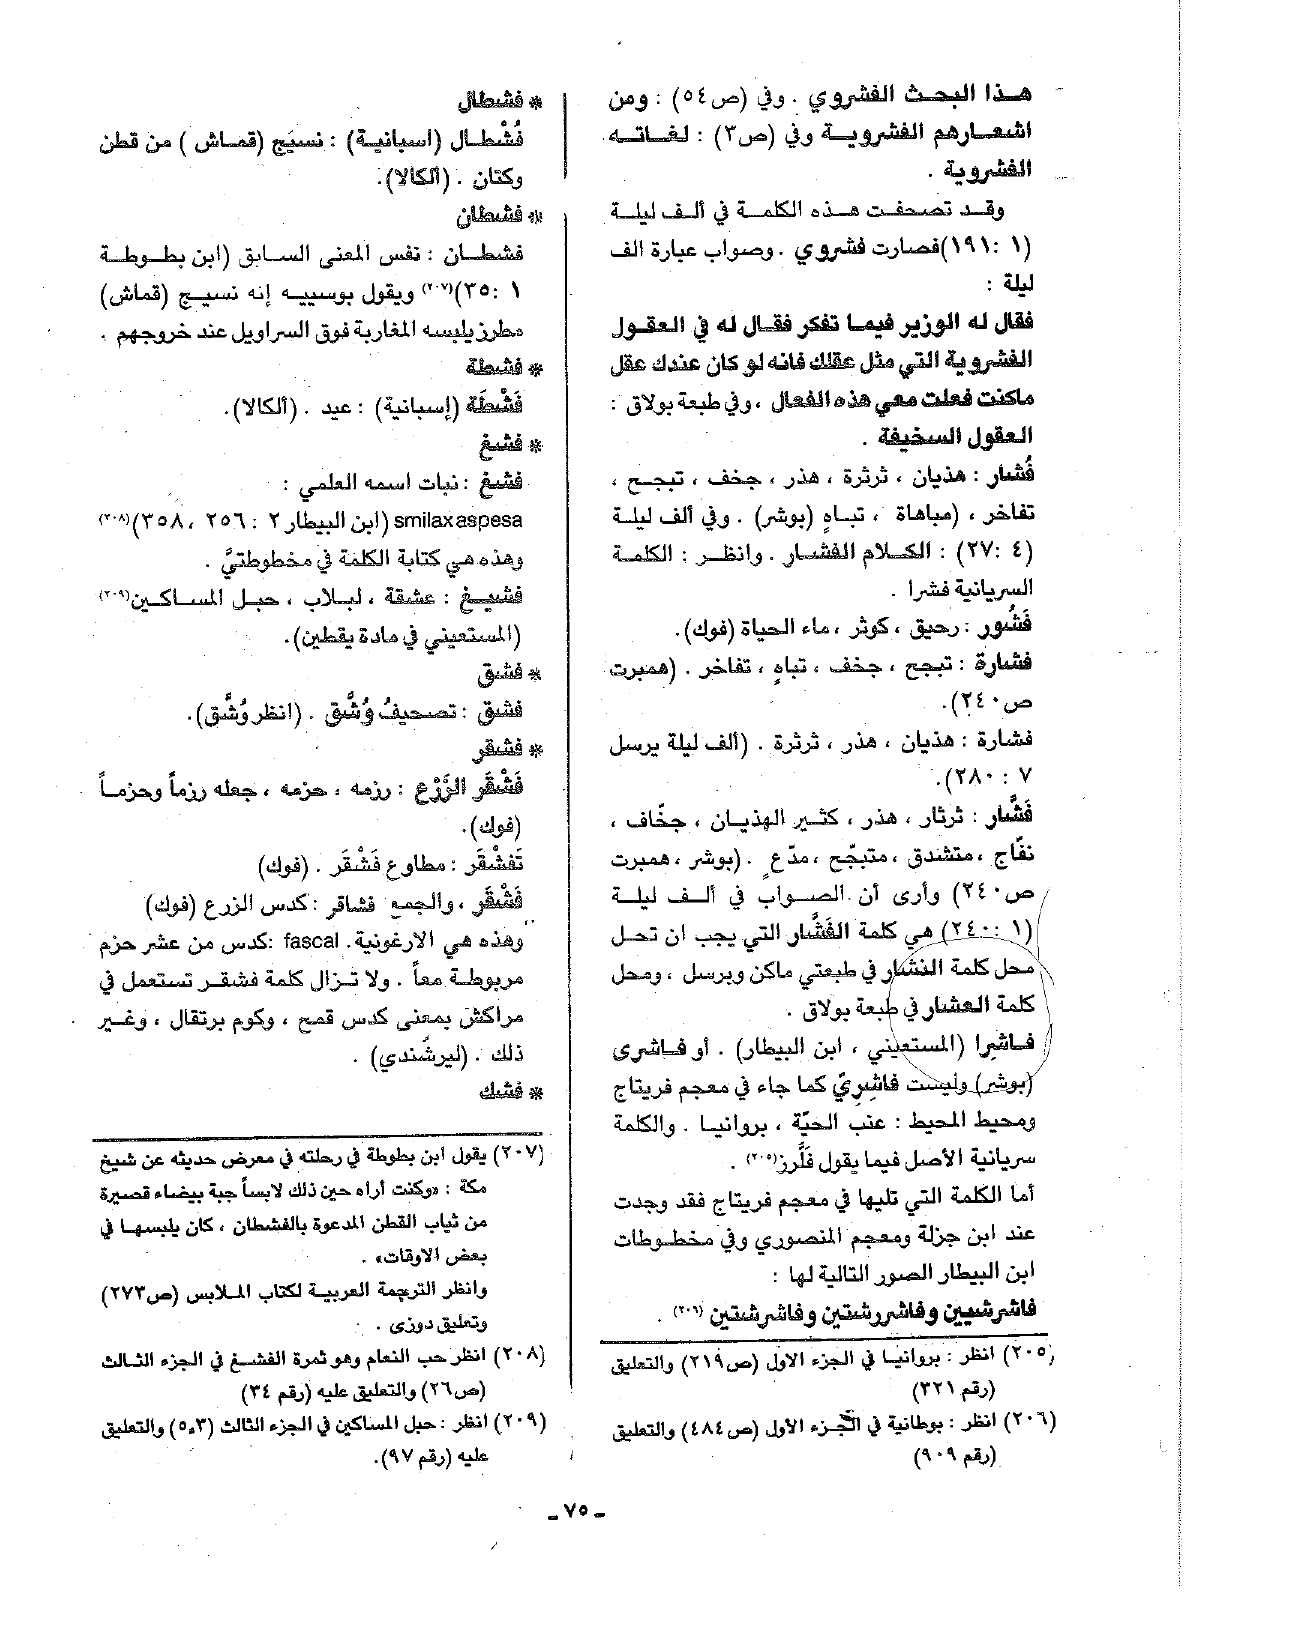 هذا البحث الفشروي . وفي (ص٥٤) : ومن
اشعارهم الفشروية وفي (ص٣) : لغاته
الفشروية .
وقد تصحفت هذه الكلمة في ألف ليلة
(١ :١٩١)فصارت فشروي . وصواب عبارة الف
ليلة :
فقال له الوزير فيما تفكر فقال له في العقول
الفشروية التي مثل عقلك فانه لو كان عندك عقل
ماكنت فعلت معي هذه الفعال ، وفي طبعة بولاق :
العقول السخيفة .
فُشار : هذيان ، ثرثرة ، هذر ، جخف ، تبجح ،
تفاخر ، (مباهاة ، تباهٍ (بوشر) . وفي ألف ليلة
(٤ :٢٧) : الكلام الفشار . وانظر : الكلمة
السريانية فشرا .
فَشُور : رحيق ، كوثر ، ماء الحياة (فوك).
فشارة : تبجح ، جخف ، تباهٍ ، تفاخر . (همبرت
ص٢٤٠).
فشارة : هذيان ، هذر ، ثرثرة . (ألف ليلة يرسل
٧ : ٢٨٠).
فَشّار : ثرثار ، هذر ، كثير الهذيان ، جخّاف ،
نفّاج ، متشدق ، متبجّح ، مدّعٍ . (بوشر ، همبرت
ص٢٤٠) وأرى أن الصواب في ألف ليلة
(١ :٢٤٠) هي كلمة الفَشَّار التي يجب ان تحل
محل كلمة النشار في طبعتي ماكن وبرسل ، ومحل
كلمة العشار في طبعة بولاق .
فاشرا (المستعيني ، ابن البيطار) . أو فاشرى
(بوشر) وليست فاشريّ كما جاء في معجم فريتاج
ومحيط المحيط : عنب الحيّة ، بروانيا . والكلمة
سريانية الأصل فيما يقول فَلَّرز(٢٠٥) .
أما الكلمة التي تليها في معجم فريتاج فقد وجدت
عند ابن جزلة ومعجم المنصوري وفي مخطوطات
ابن البيطار الصور التالية لها :
فاشرشيين وفاشررشتين وفاشرشتين (٢٠٦) .
(٢٠٥) انظر : بروانيا في الجزء الاول (ص٢١٩) والتعليق
(رقم ٣٢١)
(٢٠٦) انظر : بوطانية في الجزء الاول (ص٤٨٤) والتعليق
(رقم ٩٠٩)
* فشطال
فُشْطال (اسبانية) : نسيَج (قماش ) من قطن
وكتان . (ألكالا).
* فشطان
فشطان : نفس المعنى السابق (ابن بطوطة
١ :٣٥)(٢٠٧) ويقول بوسييه إنه نسيج (قماش)
مطرز يلبسه المغاربة فوق السراويل عند خروجهم .
* فشطة
فَشْطَة (إسبانية) : عيد . (ألكالا).
* فشغ
فشغ : نبات اسمه العلمي :
smilax aspesa (ابن البيطار ٢ : ٢٥٦ ، ٣٥٨)(٢٠٨)
وهذه هي كتابة الكلمة في مخطوطتيَّ .
فشيغ : عشقة ، لبلاب ، حبل المساكين(٢٠٩)
(المستعيني في مادة يقطين).
* فشق
فشق : تصحيفُ وُشَّق . (انظر وُشَّق).
* فشقر
فَشْقَر الزَرْع : رزمه ، حزمه ، جعله رزماً وحزماً
(فوك).
تَفَشْقَر : مطاوع فَشْقَر . (فوك)
فَشْقَر ، والجمع فشاقر : كدس الزرع (فوك)
وهذه هي الارغونية. fascal :كدس من عشر حزم
مربوطة معاً . ولا تزال كلمة فشقر تستعمل في
مراكش بمعنى كدس قمح ، وكوم برتقال ، وغير
ذلك . (ليرشُندي) .
* فشك
(٢٠٧) يقول ابن بطوطة في رحلته في معرض حديثه عن شيخ
مكة : «وكنت أراه حين ذلك لابساً جبة بيضاء قصيرة
من ثياب القطن المدعوة بالفشطان ، كان يلبسها في
بعض الاوقات» .
وانظر الترجمة العربية لكتاب الملابس (ص٢٧٣)
وتعليق دوزى .
(٢٠٨) انظر حب النعام وهو ثمرة الفشغ في الجزء الثالث
(ص٢٦) والتعليق عليه (رقم ٣٤)
(٢٠٩) انظر : حبل المساكين في الجزء الثالث (٥٠٣) والتعليق
عليه (رقم ٩٧).
ـ ٧٥ ـ